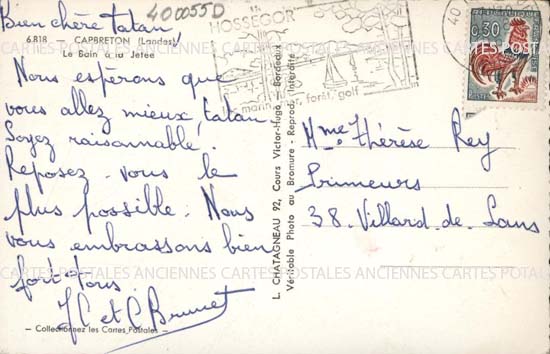 Bien chère tatan
400055D
6.818 - CAPBRETON (Landes)
Le Bain à la Jetée
Nous espérons que
vous allez mieux, tatan
Soyez raisonnable.
Reposez-vous le
plus possible. Nous
vous embrassons bien
fort-Tous
JC et C Brunet
- Collectionnez les Cartes Postales -
L. CHATAGNEAU 92, Cours Victor-Hugo, Bordeaux
Véritable Photo au Bromure - Reprod. Interdite
HOSSEGOR
forêt, golf
40
0,30
Mme Thérèse Rey
Primeurs
38-Villard-de-Lans
CARTES POSTALES ANCIENNES CARTES POSTALES ANCIENNES CARTES POSTALES